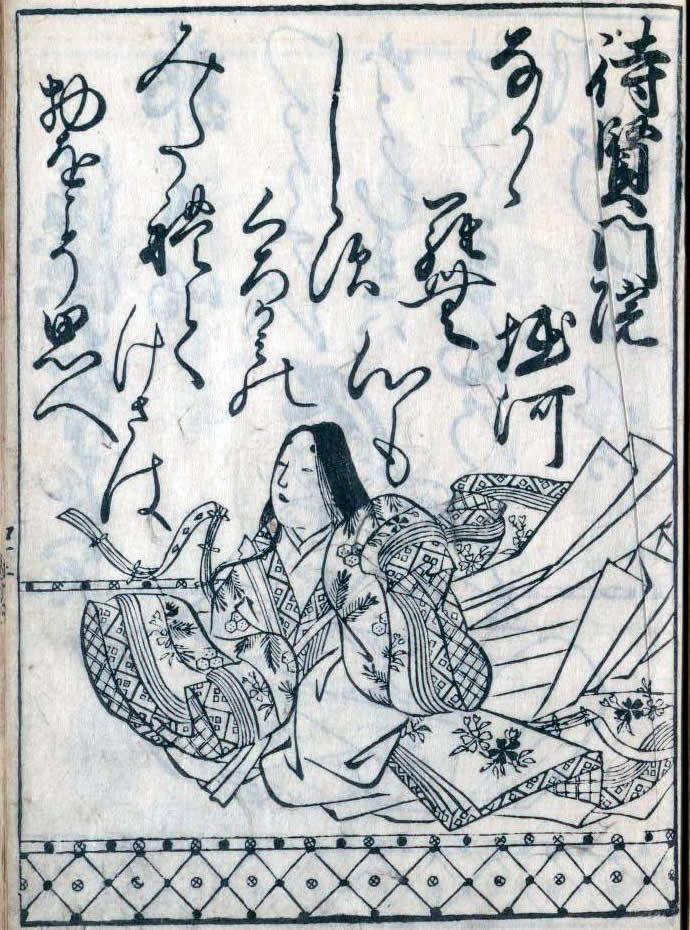 待賢門院
堀河
なかゝ
らむ
心も
しらす
くろかみの
みたれて
けさは
物をこそ思へ